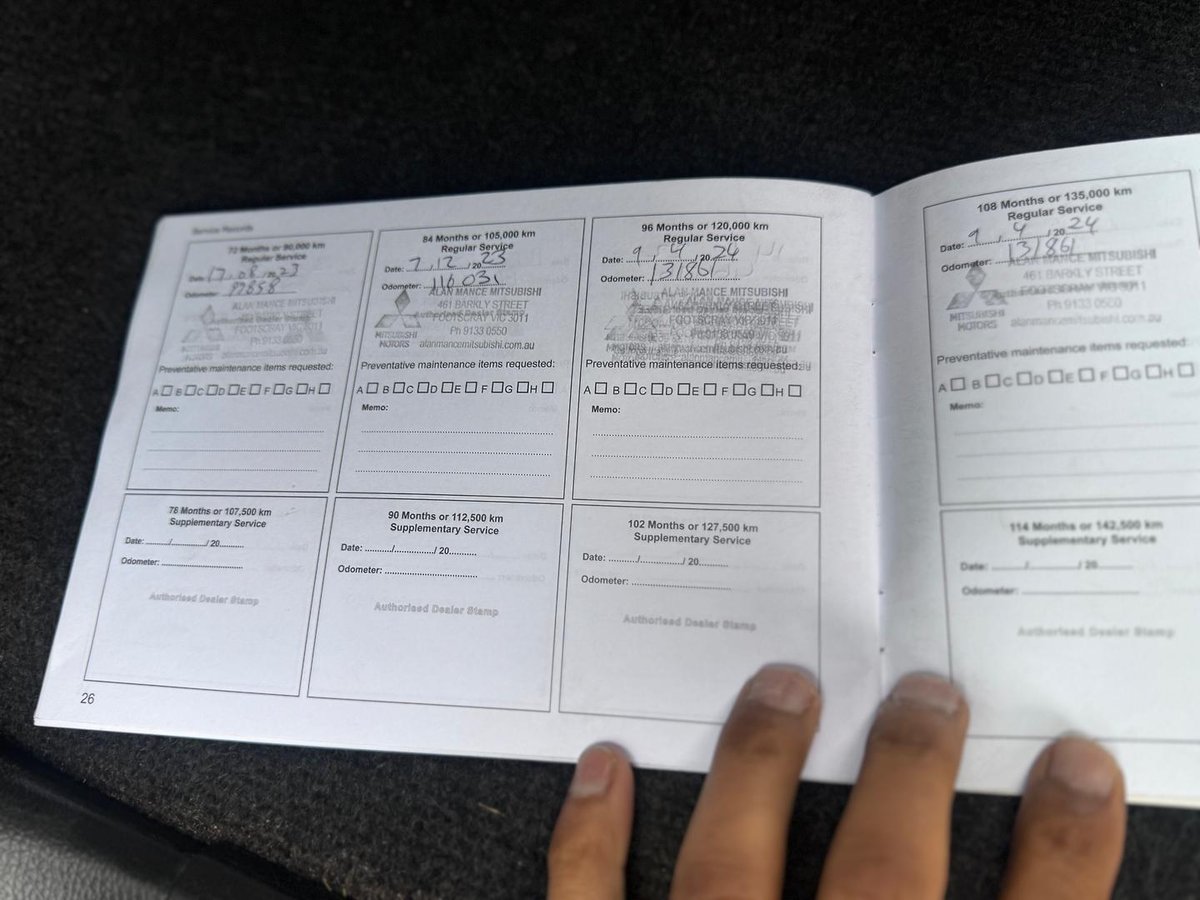 Service Records
72 Months or 90,000 km
Regular Service
Date: 17.08.2023
Odometer: 97858
ALAN MANCE MITSUBISHI
Authorised Dealer Stamp
FOOTSCRAY VIC 3011
Ph 9133 0550
alanmancemitsubishi.com.au
Preventative maintenance items requested:
A B C D E F G H
Memo:
84 Months or 105,000 km
Regular Service
Date: 7 / 12 / 2023
Odometer: 116 031
ALAN MANCE MITSUBISHI
461 BARKLY STREET
Authorised Dealer Stamp
FOOTSCRAY VIC 3011
MITSUBISHI
MOTORS
Ph 9133 0550
alanmancemitsubishi.com.au
Preventative maintenance items requested:
A B C D E F G H
Memo:
96 Months or 120,000 km
Regular Service
Date: 9 / 4 / 2024
Odometer: 131861
ALAN MANCE MITSUBISHI
FOOTSCRAY VIC 3011
Preventative maintenance items requested:
A B C D E F G H
Memo:
108 Months or 135,000 km
Regular Service
Date: 9 / 4 / 2024
Odometer: 131861
ALAN MANCE MITSUBISHI
461 BARKLY STREET
FOOTSCRAY VIC 3011
Ph 9133 0550
MITSUBISHI
MOTORS
alanmancemitsubishi.com.au
Preventative maintenance items requested:
A B C D E F G H
Memo:
78 Months or 107,500 km
Supplementary Service
Date: ........./............../ 20.........
Odometer: ..............................
Authorised Dealer Stamp
90 Months or 112,500 km
Supplementary Service
Date: ........./............../ 20.........
Odometer: ..............................
Authorised Dealer Stamp
102 Months or 127,500 km
Supplementary Service
Date: ........./............../ 20.........
Odometer: ..............................
Authorised Dealer Stamp
114 Months or 142,500 km
Supplementary Service
Date: ........./............../ 20.........
Odometer: ..............................
Authorised Dealer Stamp
26